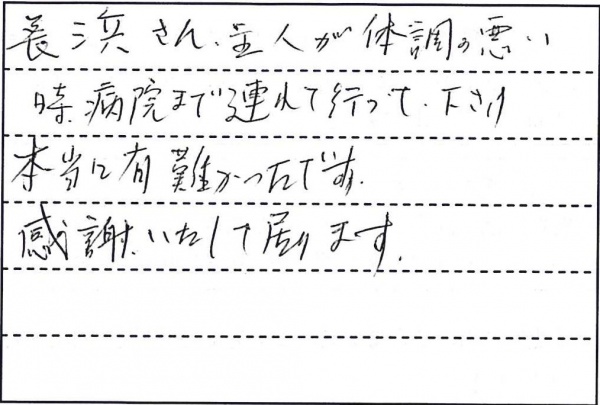 長浜さん、主人が体調の悪い
時病院まで連れて行って、下さり
本当に有難かったです。
感謝いたして居ります。